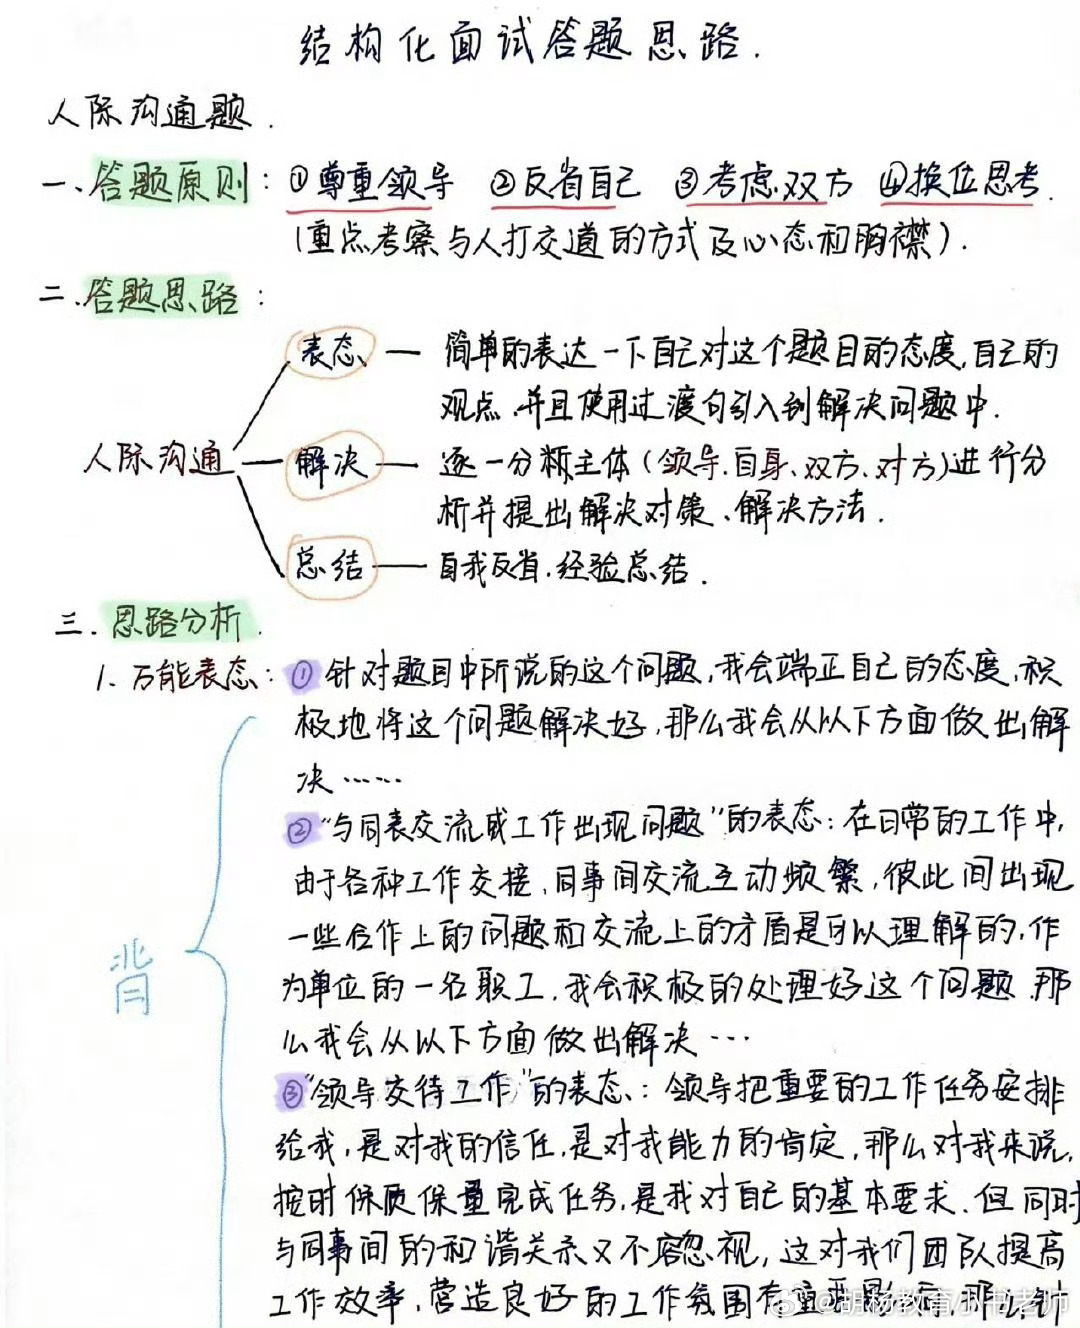 结构化面试答题思路.
人际沟通题.
一、答题原则：①尊重领导 ②反省自己 ③考虑双方 ④换位思考.
(重点考察与人打交道的方式及心态和胸襟).
二、答题思路：
表态 — 简单的表达一下自己对这个题目的态度,自己的
观点,并且使用过渡句引入到解决问题中.
人际沟通 — 解决 — 逐一分析主体(领导、自身、双方、对方)进行分
析并提出解决对策、解决方法.
总结 — 自我反省.经验总结.
三.思路分析.
1.万能表态：①针对题目中所说的这个问题,我会端正自己的态度,积
极地将这个问题解决好,那么我会从以下方面做出解
决……
②"与同表交流或工作出现问题"的表态：在日常的工作中,
由于各种工作交接、同事间交流互动频繁,彼此间出现
一些合作上的问题和交流上的矛盾是可以理解的,作
背
为单位的一名职工,我会积极的处理好这个问题,那
么我会从以下方面做出解决…
③"领导交待工作"的表态：领导把重要的工作任务安排
给我,是对我的信任,是对我能力的肯定,那么对我来说,
按时保质保量完成任务,是我对自己的基本要求.但同时
与同事间的和谐关系又不容忽视,这对我们团队提高
工作效率,营造良好的工作氛围有重要影响,那么针
@胡杨教育小书老师